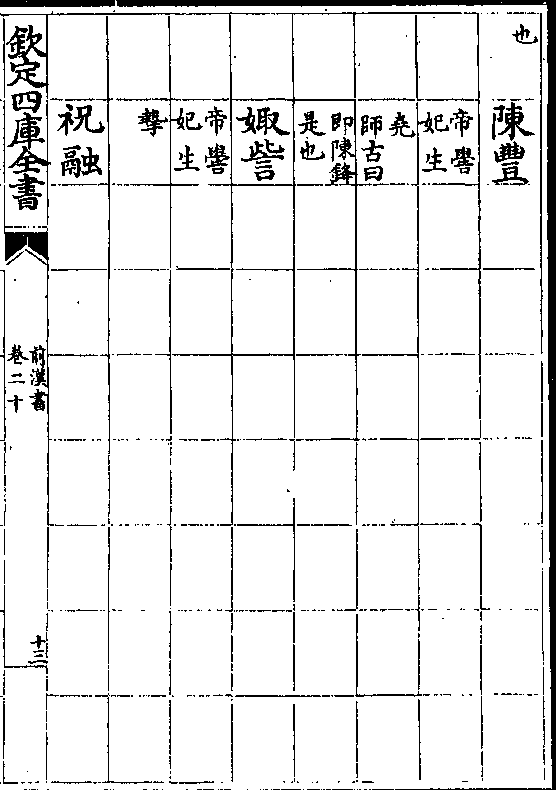 也
陳豐
帝嚳
妃生
堯
師古曰
即陳鋒
是也
娵訾
帝嚳
妃生
摯
祝融
欽定四庫全書
前漢書
卷二十
十三